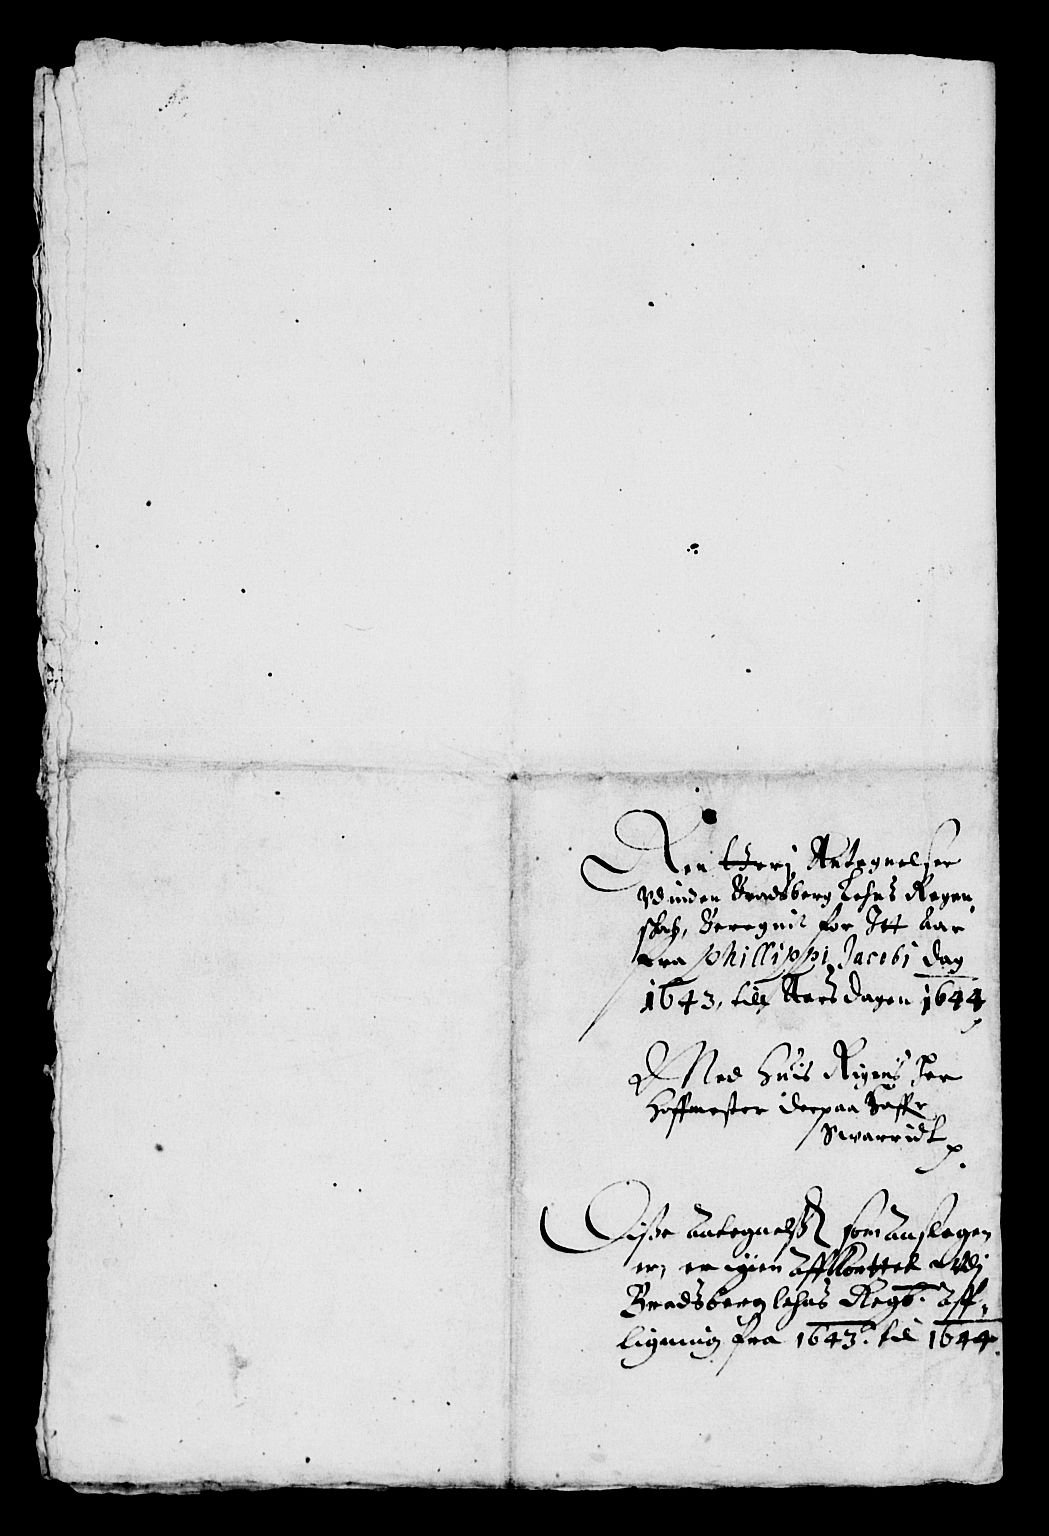 Renttherj Antegnelser
Vdinden Bradsberg Lehns Regen
skab, Beregnit for Itt Aar
fra Phillippi Jacobi dag
1643, till Aarsdagen 1644
Med huis Rigens Her
Hoffmester derpaa haffr
Swarridt
Disse antegnelsser som anslagen
er, er igien affkorttet Vdj
Bradsberg lehns Regb. aff
ligning fra 1643. til 1644.